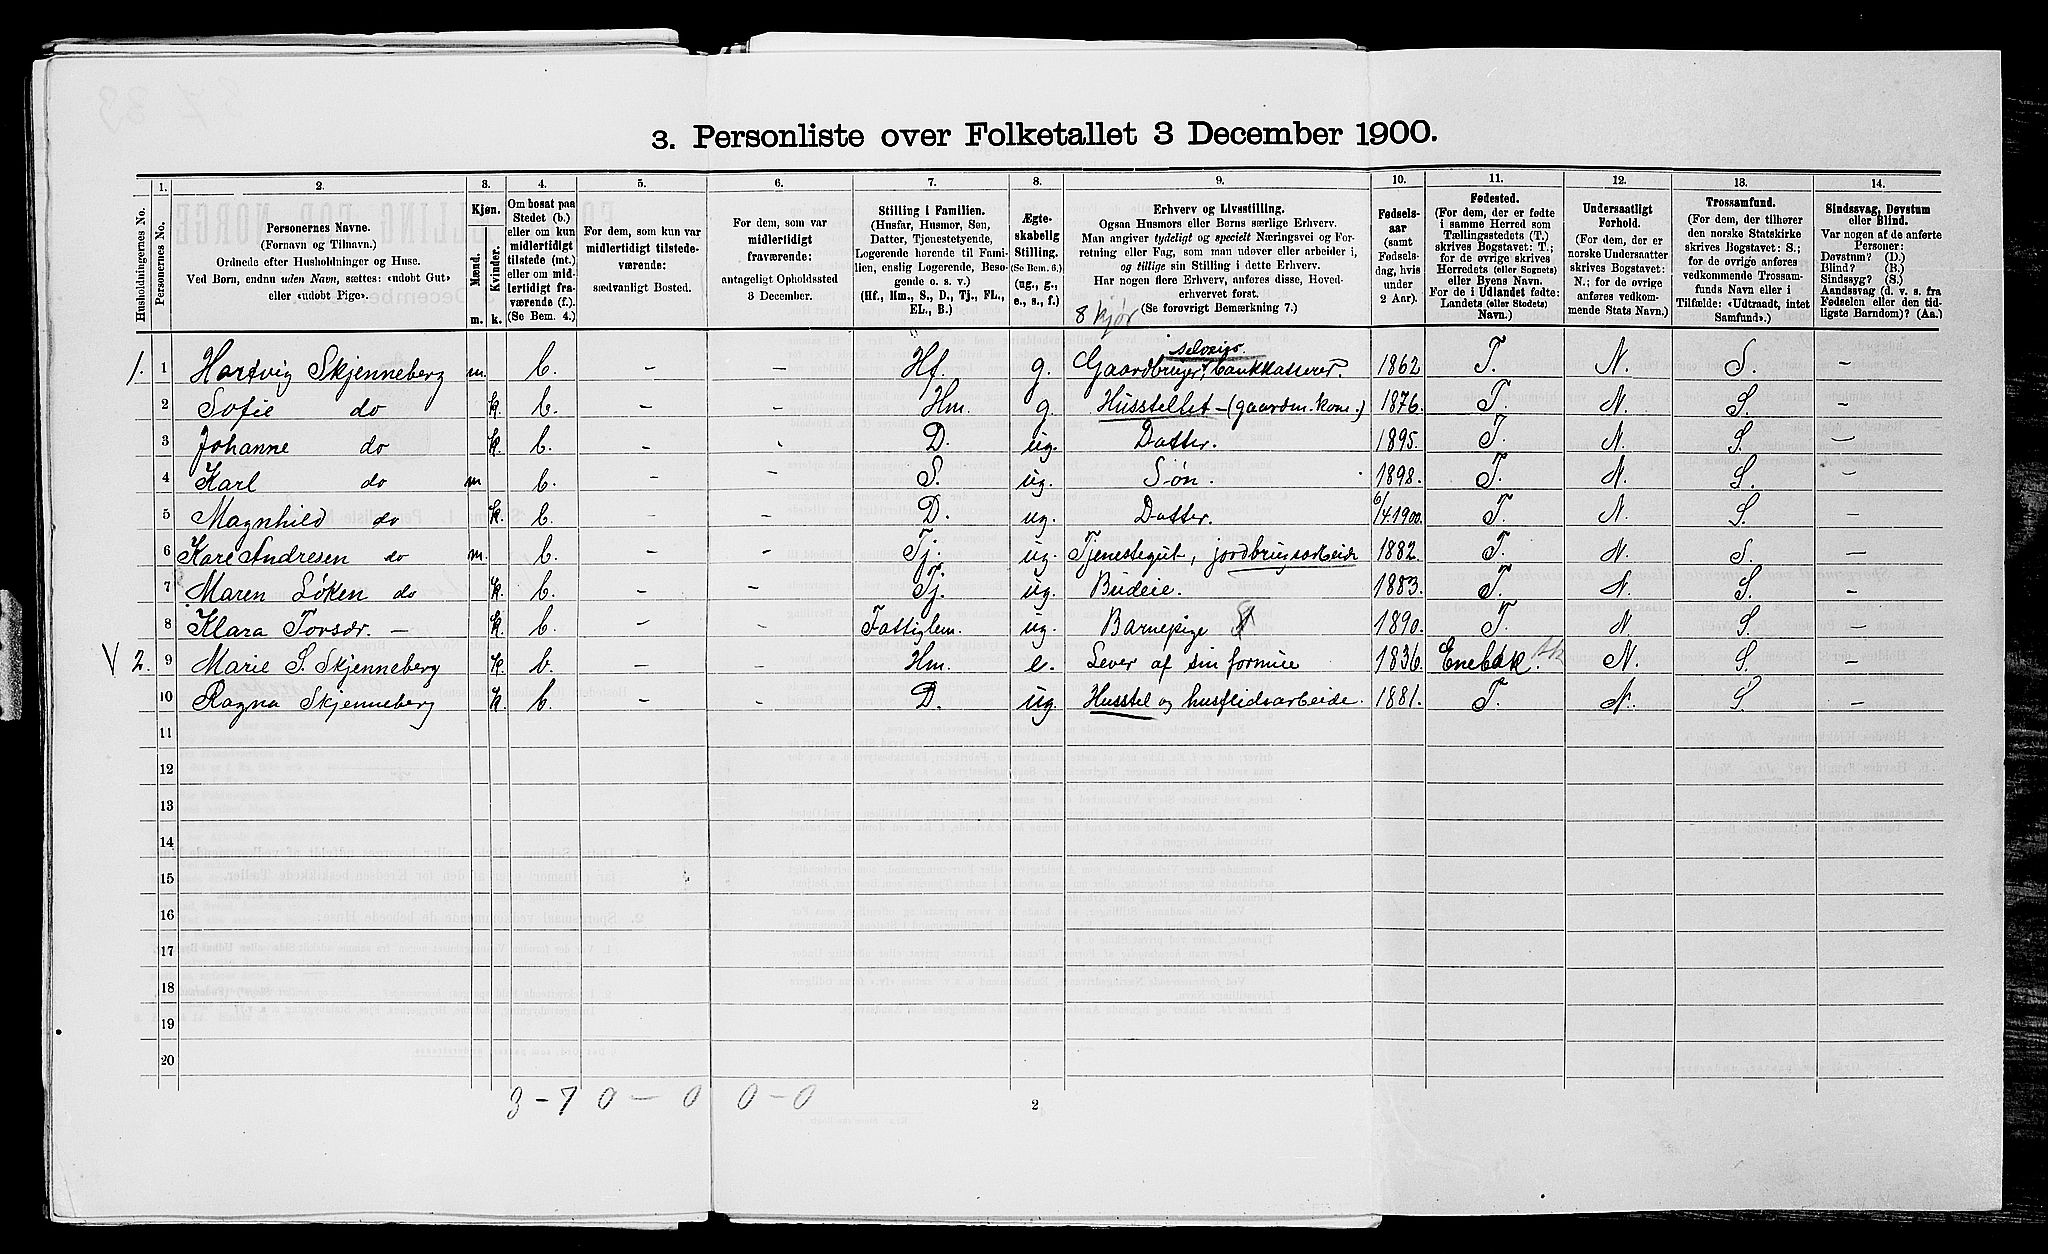 3. Personliste over Folketallet 3 December 1900.
Husholdningernes No.
1.
Personernes No.
2.
Personernes Navne.
(Fornavn og Tilnavn.)
Ordnede efter Husholdninger og Huse.
Ved Børn, endnu uden Navn, sættes: «udøbt Gut»
eller «udøbt Pige».
3.
Kjøn.
Mænd.
Kvinder.
m.
k.
4.
Om bosat paa
Stedet (b.)
eller om kun
midlertidigt
tilstede (mt.)
eller om mid-
lertidigt fra-
værende (f.).
(Se Bem. 4.)
5.
For dem, som kun var
midlertidigt tilstede-
værende:
sædvanligt Bosted.
6.
For dem, som var
midlertidigt
fraværende:
antageligt Opholdssted
3 December.
7.
Stilling i Familien.
(Husfar, Husmor, Søn,
Datter, Tjenestetyende,
Logerende hørende til Fami-
lien, enslig Logerende, Besø-
gende o. s. v.)
(Hf., Hm., S., D., Tj., FL.,
EL., B.)
8.
Ægte-
skabelig
Stilling.
(Se Bem. 6.)
(ug., g.,
e., s., f.)
9.
Erhverv og Livsstilling.
Ogsaa Husmors eller Børns særlige Erhverv.
Man angiver tydeligt og specielt Næringsvei og For-
retning eller Fag, som man udøver eller arbeider i,
og tillige sin Stilling i dette Erhverv.
Har nogen flere Erhverv, anføres disse, Hoved-
erhvervet først.
(Se forøvrigt Bemærkning 7.)
8 kjør
10.
Fødsels-
aar
(samt
Fødsels-
dag, hvis
under
2 Aar).
11.
Fødested.
(For dem, der er fødte
i samme Herred som
Tællingsstedets (T.)
skrives Bogstavet: T.;
for de øvrige skrives
Herredets (eller Sognets)
eller Byens Navn.
For de i Udlandet fødte:
Landets (eller Stedets)
Navn.)
12.
Undersaatligt
Forhold.
(For dem, der er
norske Undersaatter
skrives Bogstavet:
N.; for de øvrige
anføres vedkom-
mende Stats Navn.)
13.
Trossamfund.
(For dem, der tilhører
den norske Statskirke
skrives Bogstavet: S.;
for de øvrige anføres
vedkommende Trossam-
funds Navn eller i
Tilfælde: «Udtraadt, intet
Samfund».)
14.
Sindssvag, Døvstum
eller Blind.
Var nogen af de anførte
Personer:
Døvstum? (D.)
Blind? (B.)
Sindssyg? (S.)
Aandssvag (d. v. s. fra
Fødselen eller den tid-
ligste Barndom)? (Aa.)
selveier
1. 1 Hartvig Skjenneberg m. b. – – Hf. g. Gaardbruger, bankkasserer. 1862 T. N. S. –
2 Sofie do k. b. – – Hm. g. Husstellet – (gaardm. kone.) 1876. T. N. S. –
3 Johanne do k. b. – – D. ug. Datter. 1895. T. N. S. –
4 Karl do m b. – – S. ug. Søn. 1898. T. N. S. –
5 Magnhild do k. b. – – D. ug. Datter. 6/4.1900. T. N. S. –
6 Kare Andresen do m. b. – – Tj. ug. Tjenestegut, jordbrugsarbeide 1882. T. N. S –
7 Maren Løken do k. b. – – Tj. ug. Budeie. 1883. T. N. S. –
8 Klara Torsdr. – k. b. – – Fattiglem. ug. Barnepige 1890. T. N S. –
V 2. 9 Marie S. Skjenneberg k. b. – – Hm. e. Lever af sin formue 1836. Enebak. Ak N. S. –
10 Ragna Skjenneberg k. b. – – D. ug. Husstel og husflidsarbeide. 1881. T. N. S. –
11
12
13
14
15
16
17
18
19
20
3 – 7 0 – 0 0 – 0
2